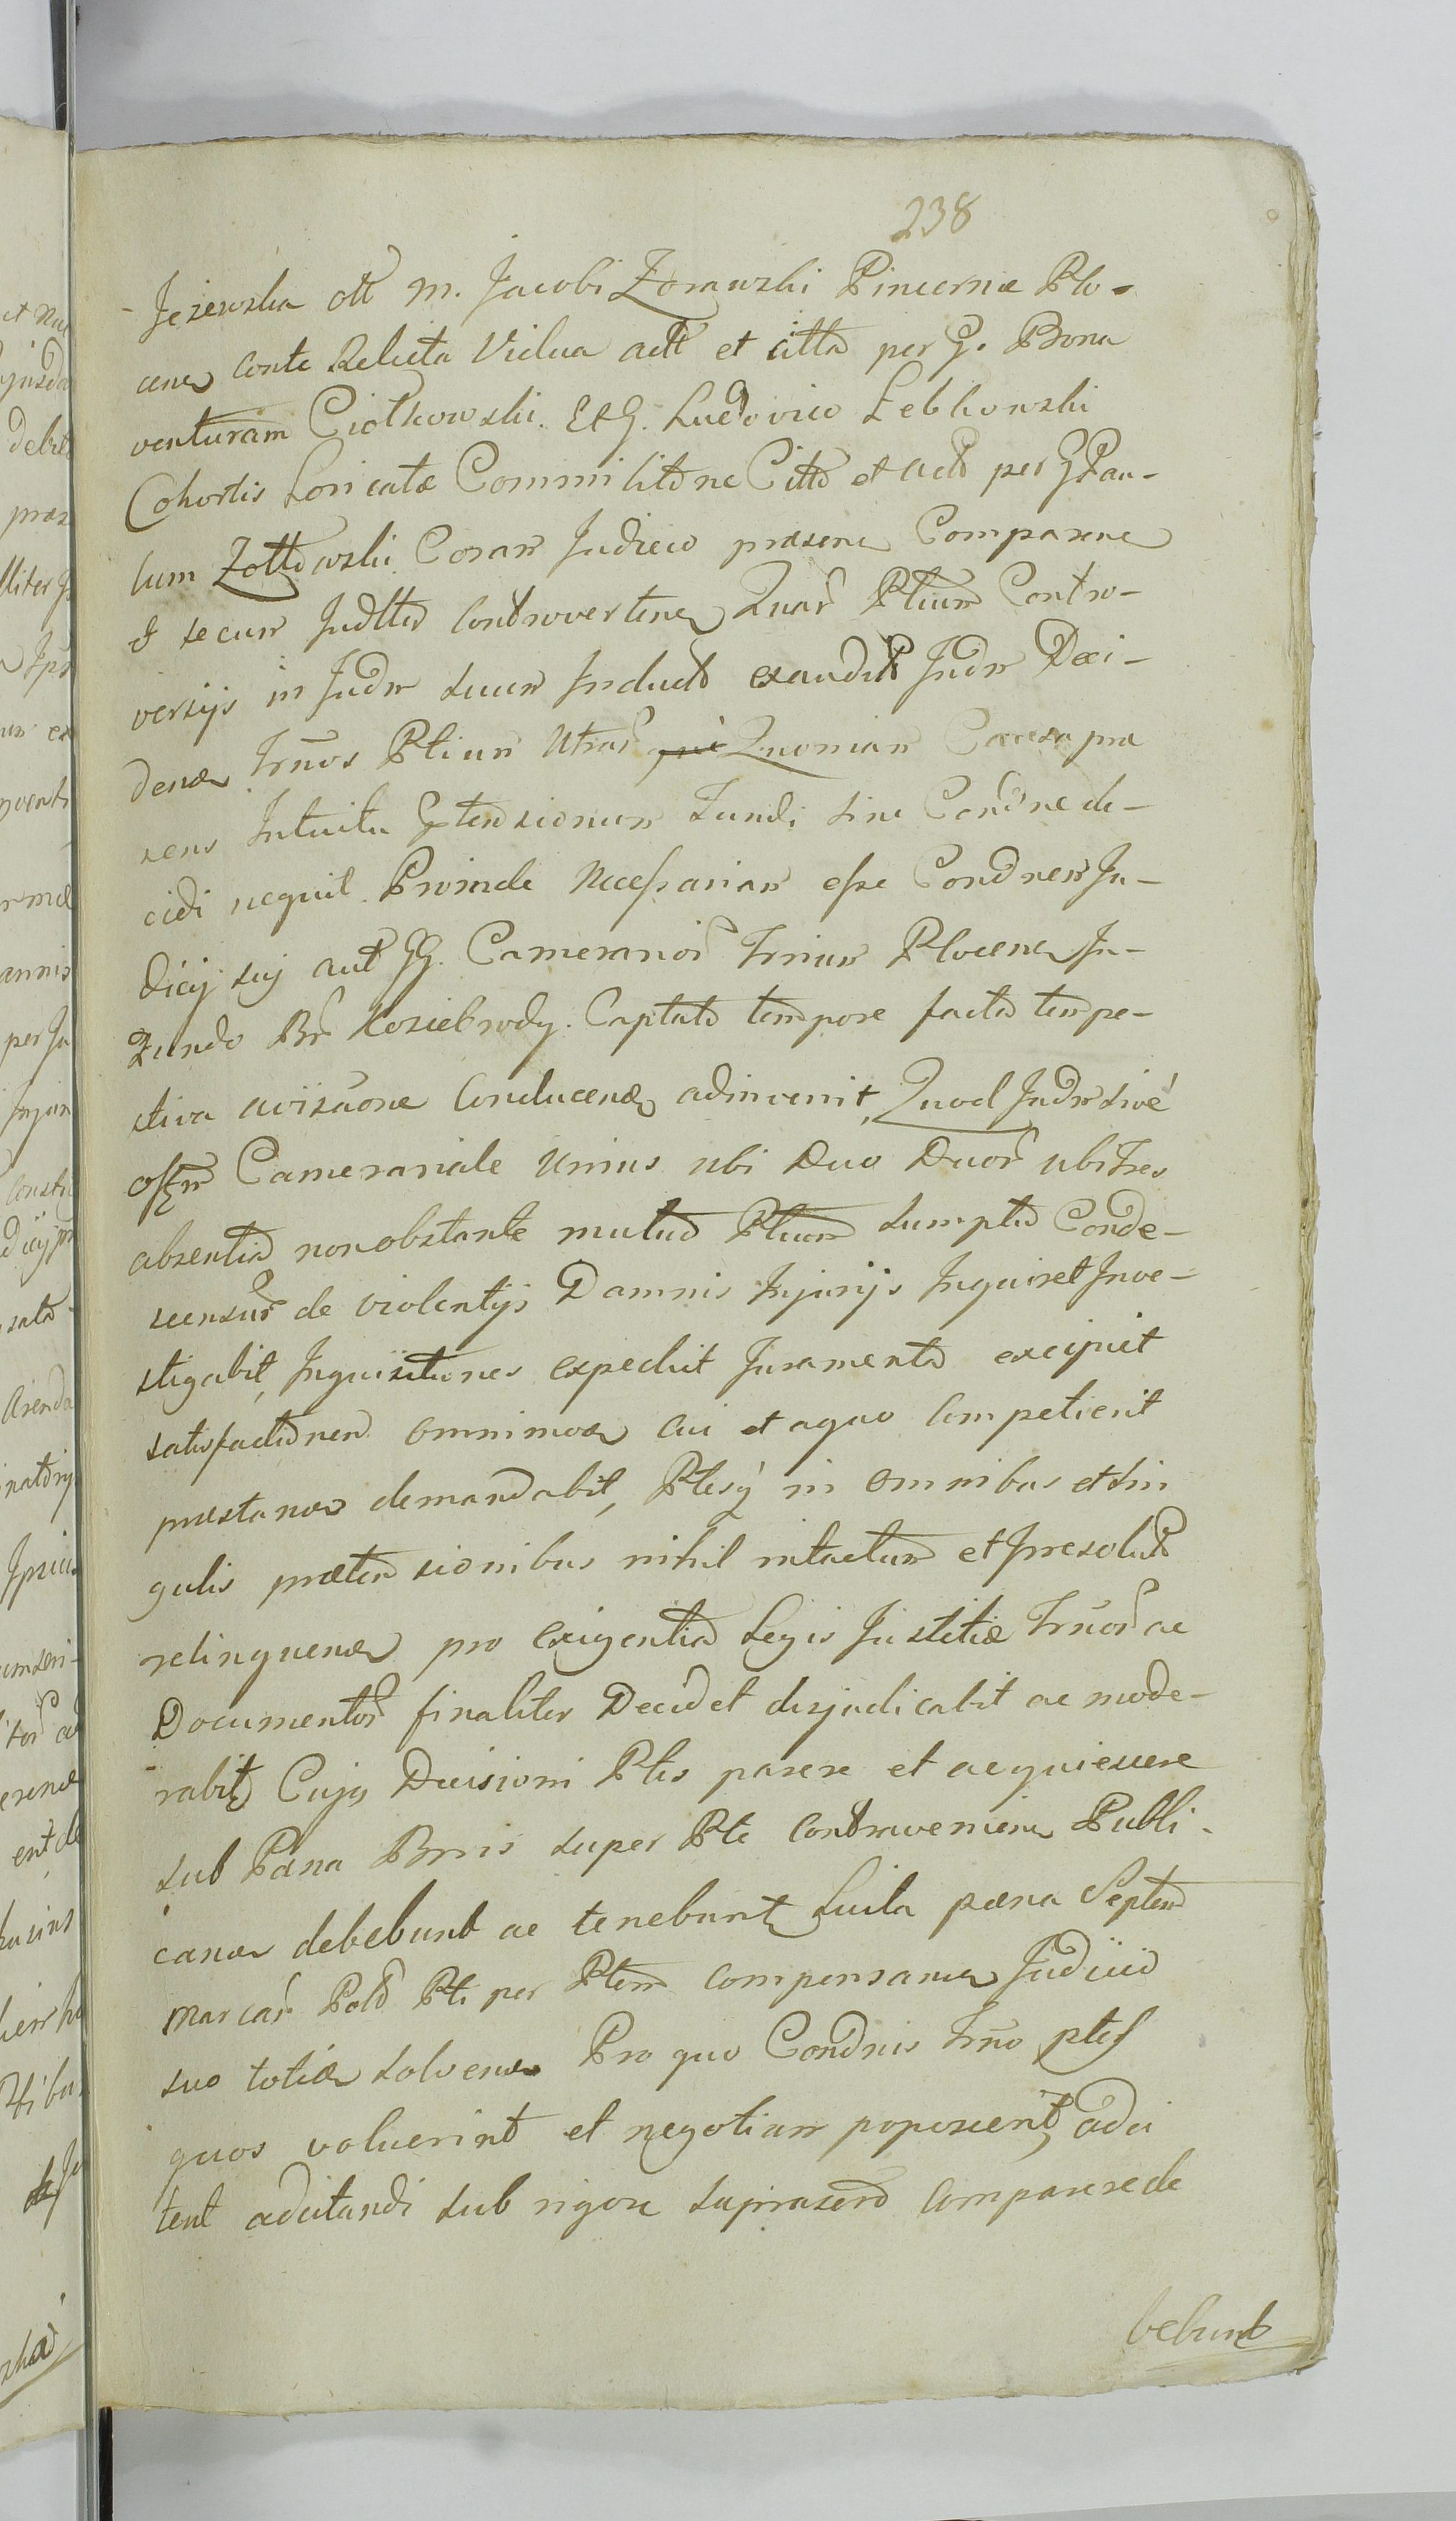 238
Jezewska olt M. Jacobi Zorawski Pincernæ Plo-
cen Conte Relicta Vidua actt et citta per G. Bona
venturam Ciołkowski. Et G. Ludovico Łebkowski
Cohortis Loricatæ Commilitone Citto et acto per G Pau-
lum Zołtowski Coram Judicio præsen Comparen
& secum Judltr controverten Quar Ptium Contro-
versijs in Judm suum Induct exaudit Judm Deci-
den Trnos Ptium Utrar Quoniam Causa præ
sens Intuitu Ptensionum Fundi sine Condne de-
cidi nequit Proinde Necessariam esse Condnem Ju-
dicij sui aut GG. Camerarior Trium Plocen In-
Fundo Br Koziebrody. Captato tempore facta tempe-
stiva avisaone Conducen adinvenit, Quod Judm sive
Offm Camerariale Unius ubi Duo Duor ubi Tres
absentia nonobstante mutuo Ptium sumpto Conde-
scensur de violentijs Damnis Injurijs Inquiret Inve-
stigabit, Inquisitiones expediet Juramenta excipiet
satisfactionem omnimo Cui et a quo Competierit
præstan demandabit, Ptesq in omnibus et sin
gulis prætensionibus nihil intactum et Irresolut
relinquen pro exigentia Legis Justitiæ Trnor ac
Documentor finaliter Decidet disjudicabit ac mode-
rabit Cujq Decisioni Ptes parere et acquiescere
sub Pæna Bnnis super Pte contravenien Publi-
can debebunt ac tenebunt Luita pæna Septem
Marcar Pol Pti per Ptem compensan Judicio
suo toties solven Pro quo Condnis Trno ptes
quos voluerint et negotium poposcerit, adci
tent adcitandi sub rigore suprascr Comparere de
bebunt